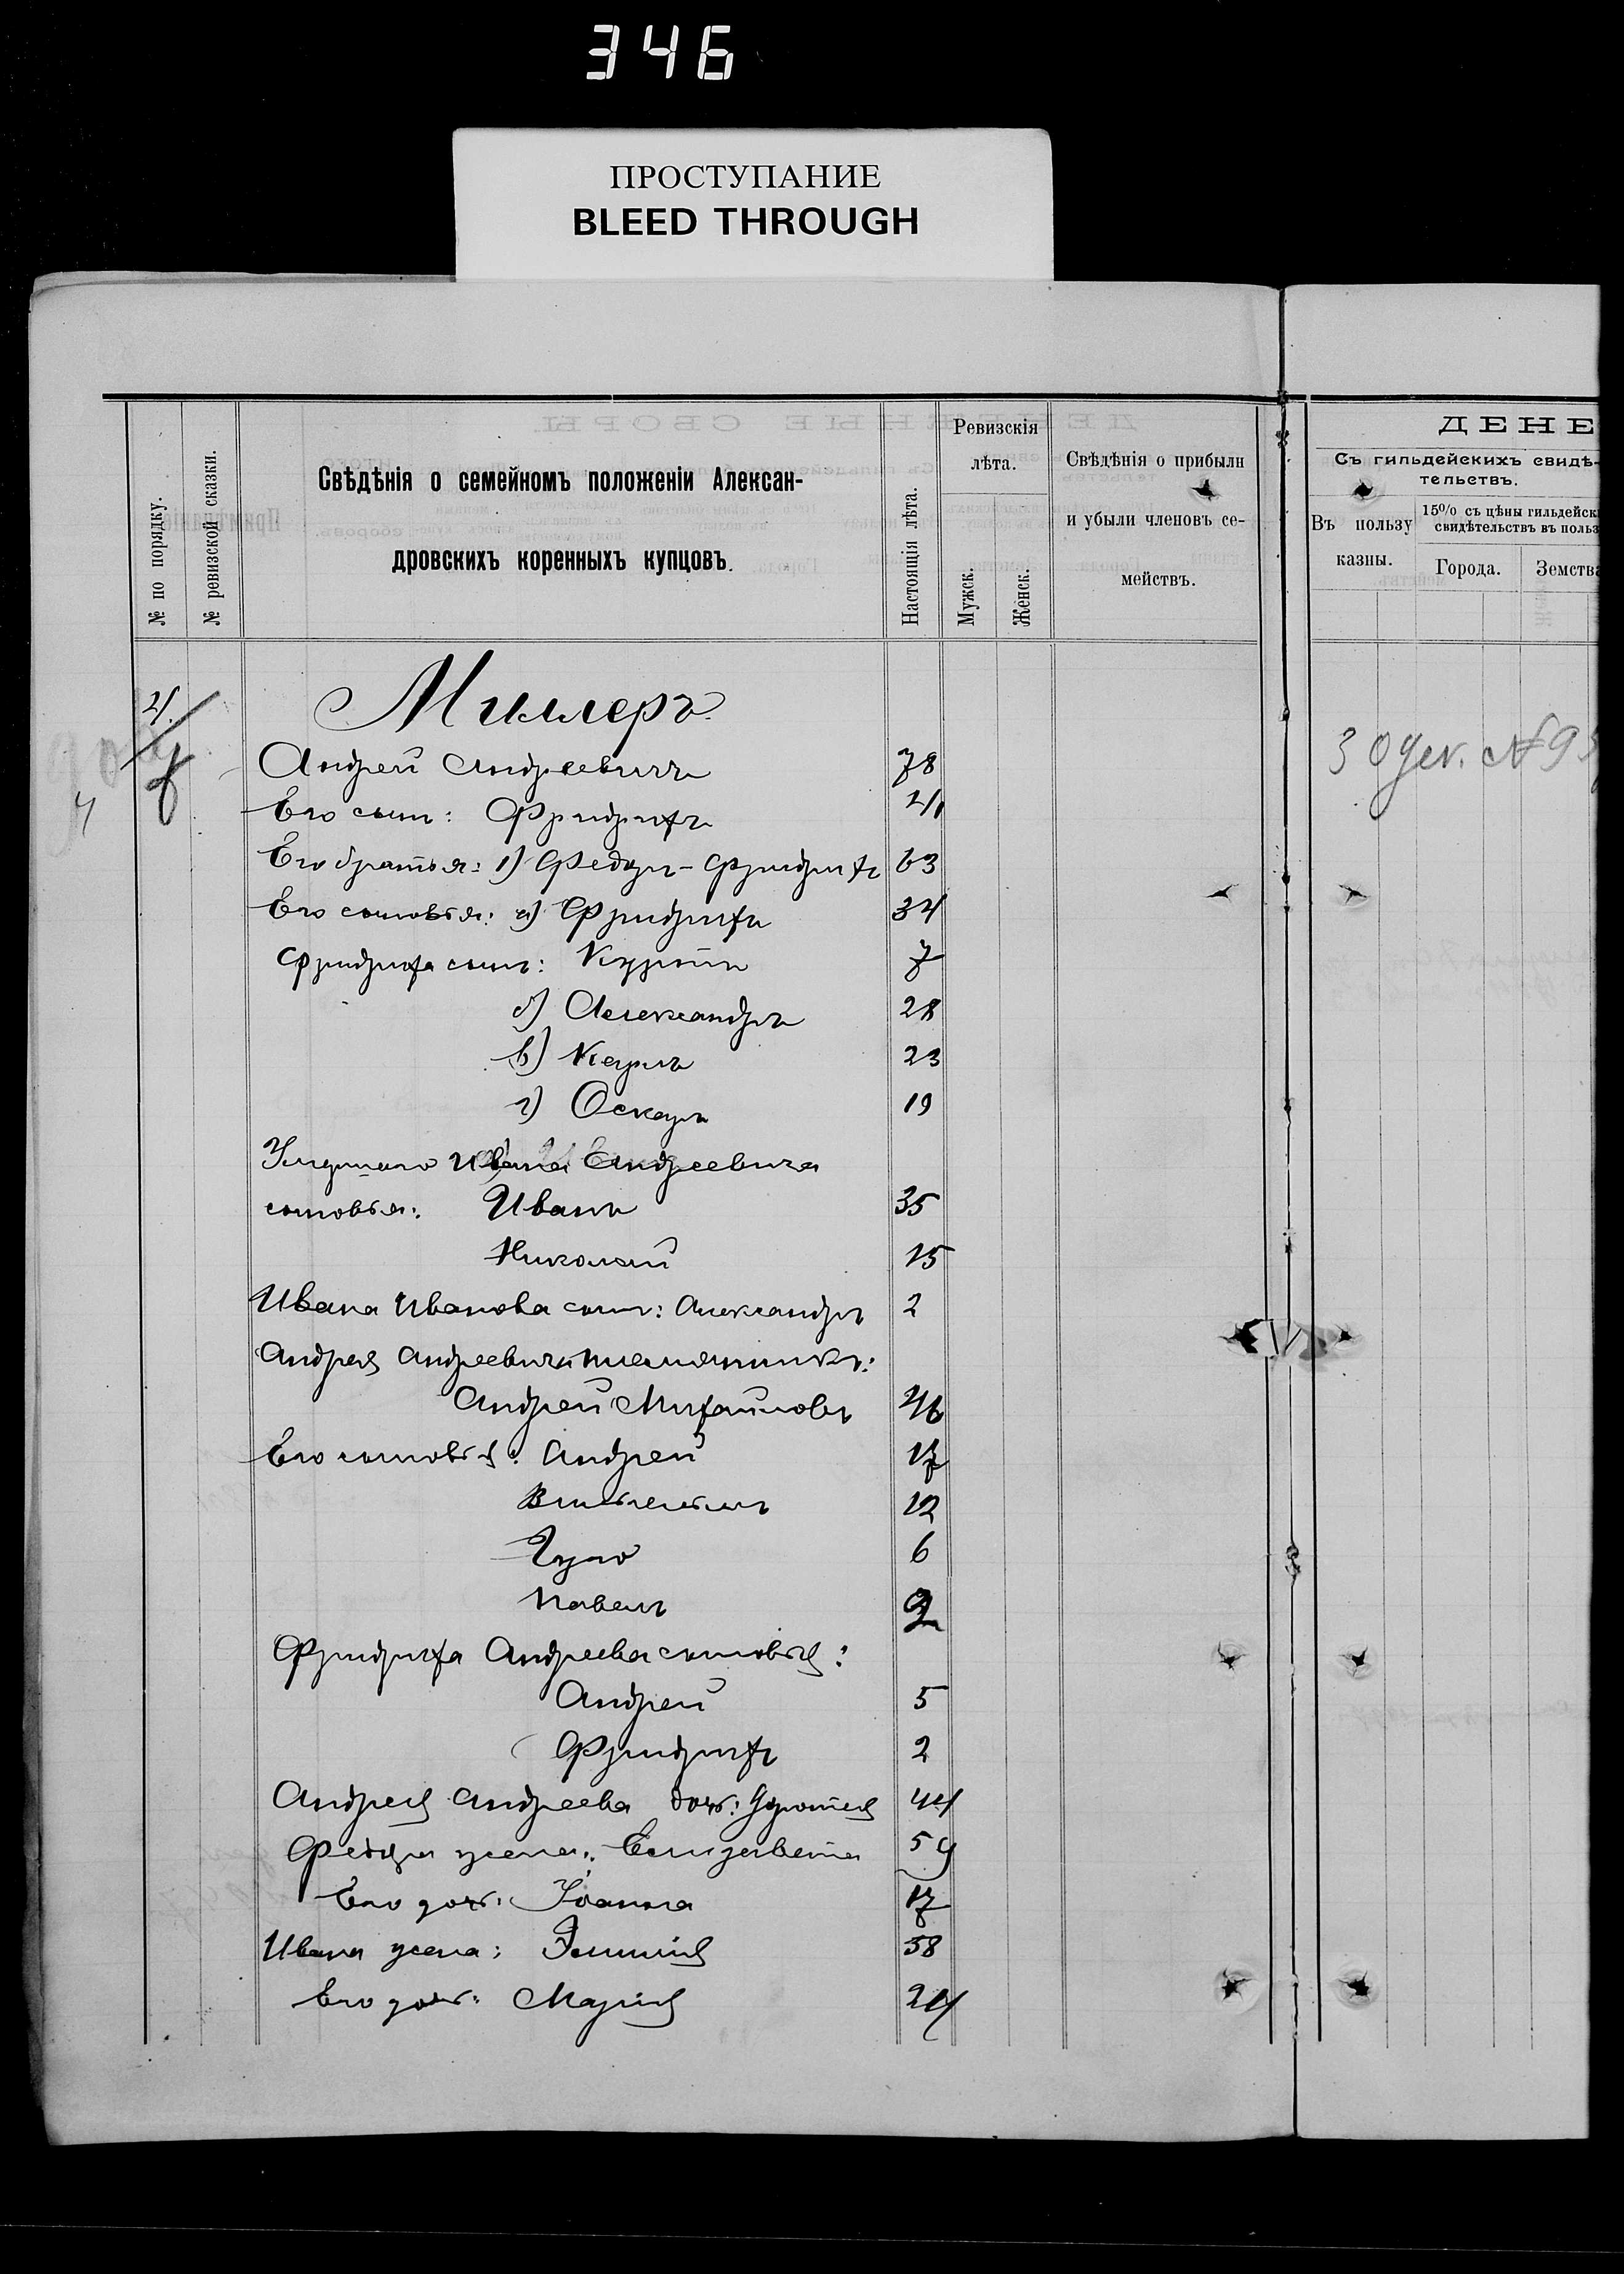 346
ПРОСТУПАНИЕ
BLEED THROUGH
№ по порядку.
№ ревизской сказки.
Свѣдѣнія о семейномъ положеніи Алексан-
дровскихъ коренныхъ купцовъ.
Настоящія лѣта.
Ревизскія
лѣта.
Мужск.
Женск.
Свѣдѣнія о прибыли
и убыли членовъ се-
мействъ.
ДЕНЕ
Съ гильдейскихъ свидѣ-
тельствъ.
Въ пользу
казны.
15% съ цѣны гильдейск
свидѣтельствъ въ польз
Города.
Земства
4. Миллеръ.
30 дек. № 93
Андрей Андреевичъ 78
Его сынъ: Фридрихъ 41
Его братья: 1) Федоръ-Фридрихъ 63
Его сыновья: а) Фридрихъ 34
Фридриха сынъ: Куртъ 7
б) Александръ 28
в) Карлъ 23
г) Оскаръ 19
Умершаго Ивана Андреевича
сыновья: Иванъ 35
Николай 15
Ивана Иванова сынъ: Александръ 2
Андрея Андреевича племянникъ:
Андрей Михайловъ 46
Его сыновья: Андрей 17
Вильгельмъ 12
Гуго 6
Павелъ 2
Фридриха Андреева сыновья:
Андрей 5
Фридрихъ 2
Андрея Андреева дочь: Доротея 44
Федора жена: Елизавета 54
Его дочь: Іоанна 17
Ивана жена: Эмилія 58
Его дочь: Марія 24